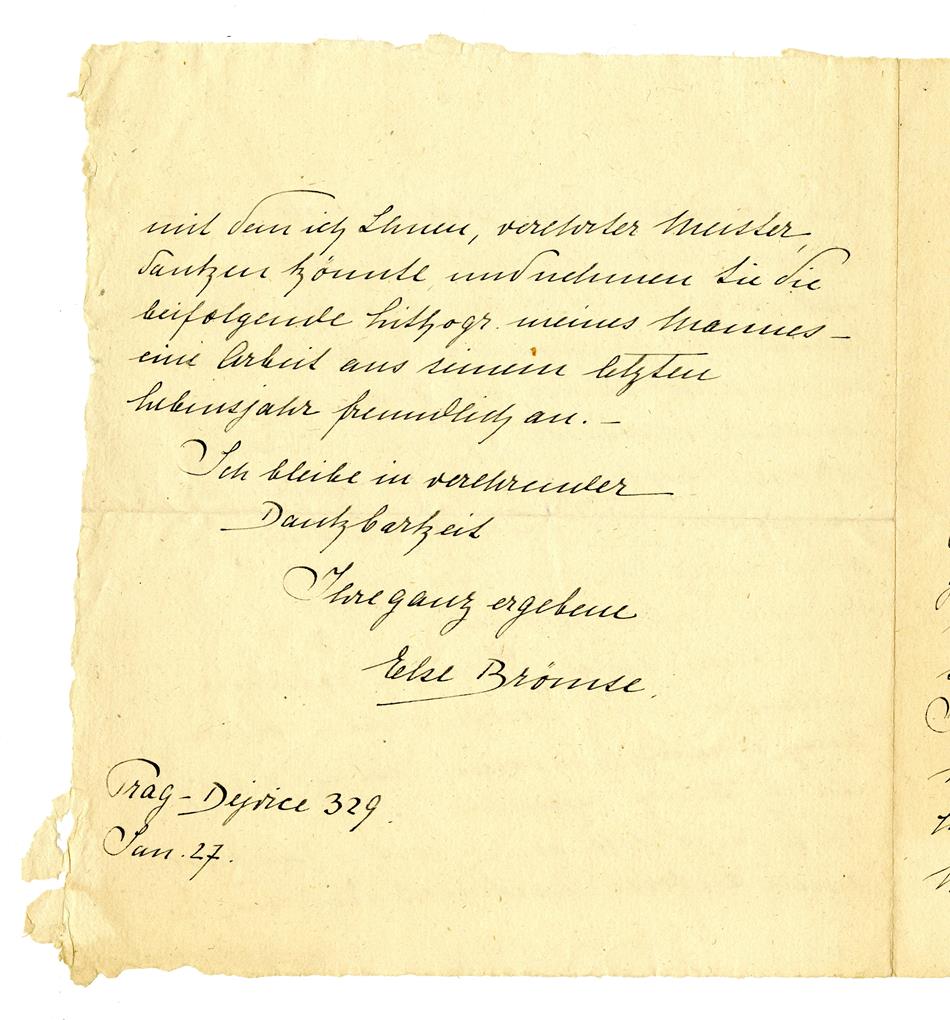 mit dem ich Ihnen, verehrter Meister,
danken könnte und nehmen Sie die
beifolgende Lithogr. meines Mannes –
eine Arbeit aus seinem letzten
Lebensjahr freundlich an. –
Ich bleibe in verehrender
Dankbarkeit
Ihre ganz ergebene
Else Brömse.
Prag – Dejvice 329.
Jan. 27.